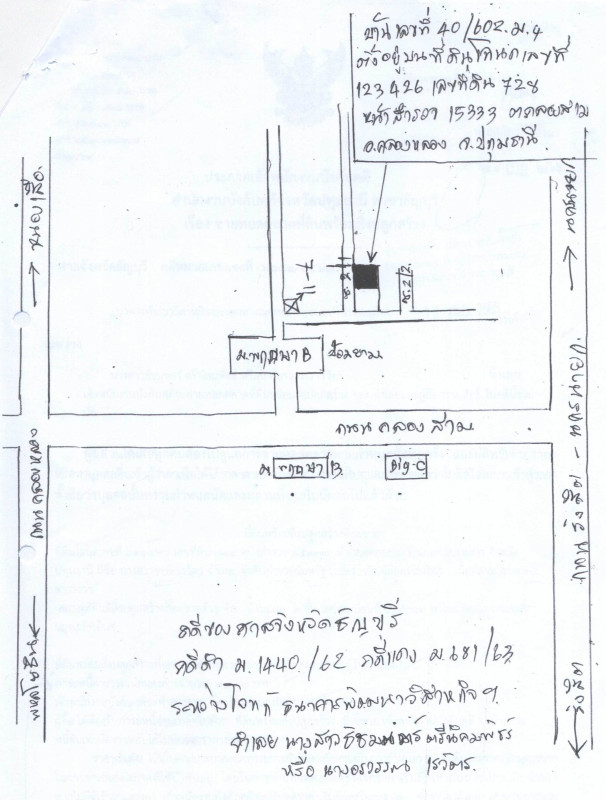 บ้านเลขที่ 40/602 ม.4
ตั้งอยู่บนที่ดินโฉนดเลขที่
123426 เลขที่ดิน 728
หน้าสำรวจ 15333 ต.คลองสาม
อ.คลองหลวง จ.ปทุมธานี
หนองเสือ
ซ.21
ซ.22
ม.พฤกษา B
ป้อมยาม
ถนน คลอง สาม
ม พฤกษา B
Big-C
ถนน คลองหลวง
พหลโยธิน
ถนน รังสิต - นครนายก
รังสิต
คดีของศาลจังหวัดธัญบุรี
คดีดำ ม.1440/62 คดีแดง ม.681/63
ระหว่างโจทก์ ธนาคารพัฒนาวิสาหกิจฯ
จำเลย นางสาว
หรือ นางอรวรรณ เรวัตร